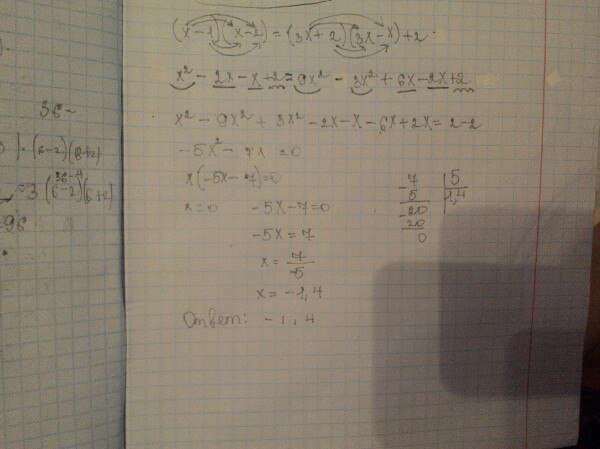 (x-1)(x-2)=(3x+2)(3x-x)+2
x²-2x-x+2=9x²-3x²+6x-2x+2
x²-9x²+3x²-2x-x-6x+2x=2-2
-5x²-7x=0
x(-5x-7)=0
x=0 -5x-7=0
-5x=7
x=7/-5
x=-1,4
Ответ: -1,4
7 | 5
5 1,4
-20
20
0
36-
(6-2)(6+2)
36-4
=3(6-2)(6+2)
96